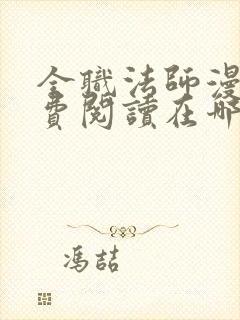 全職法師漫
費閱讀在哪
馮喆